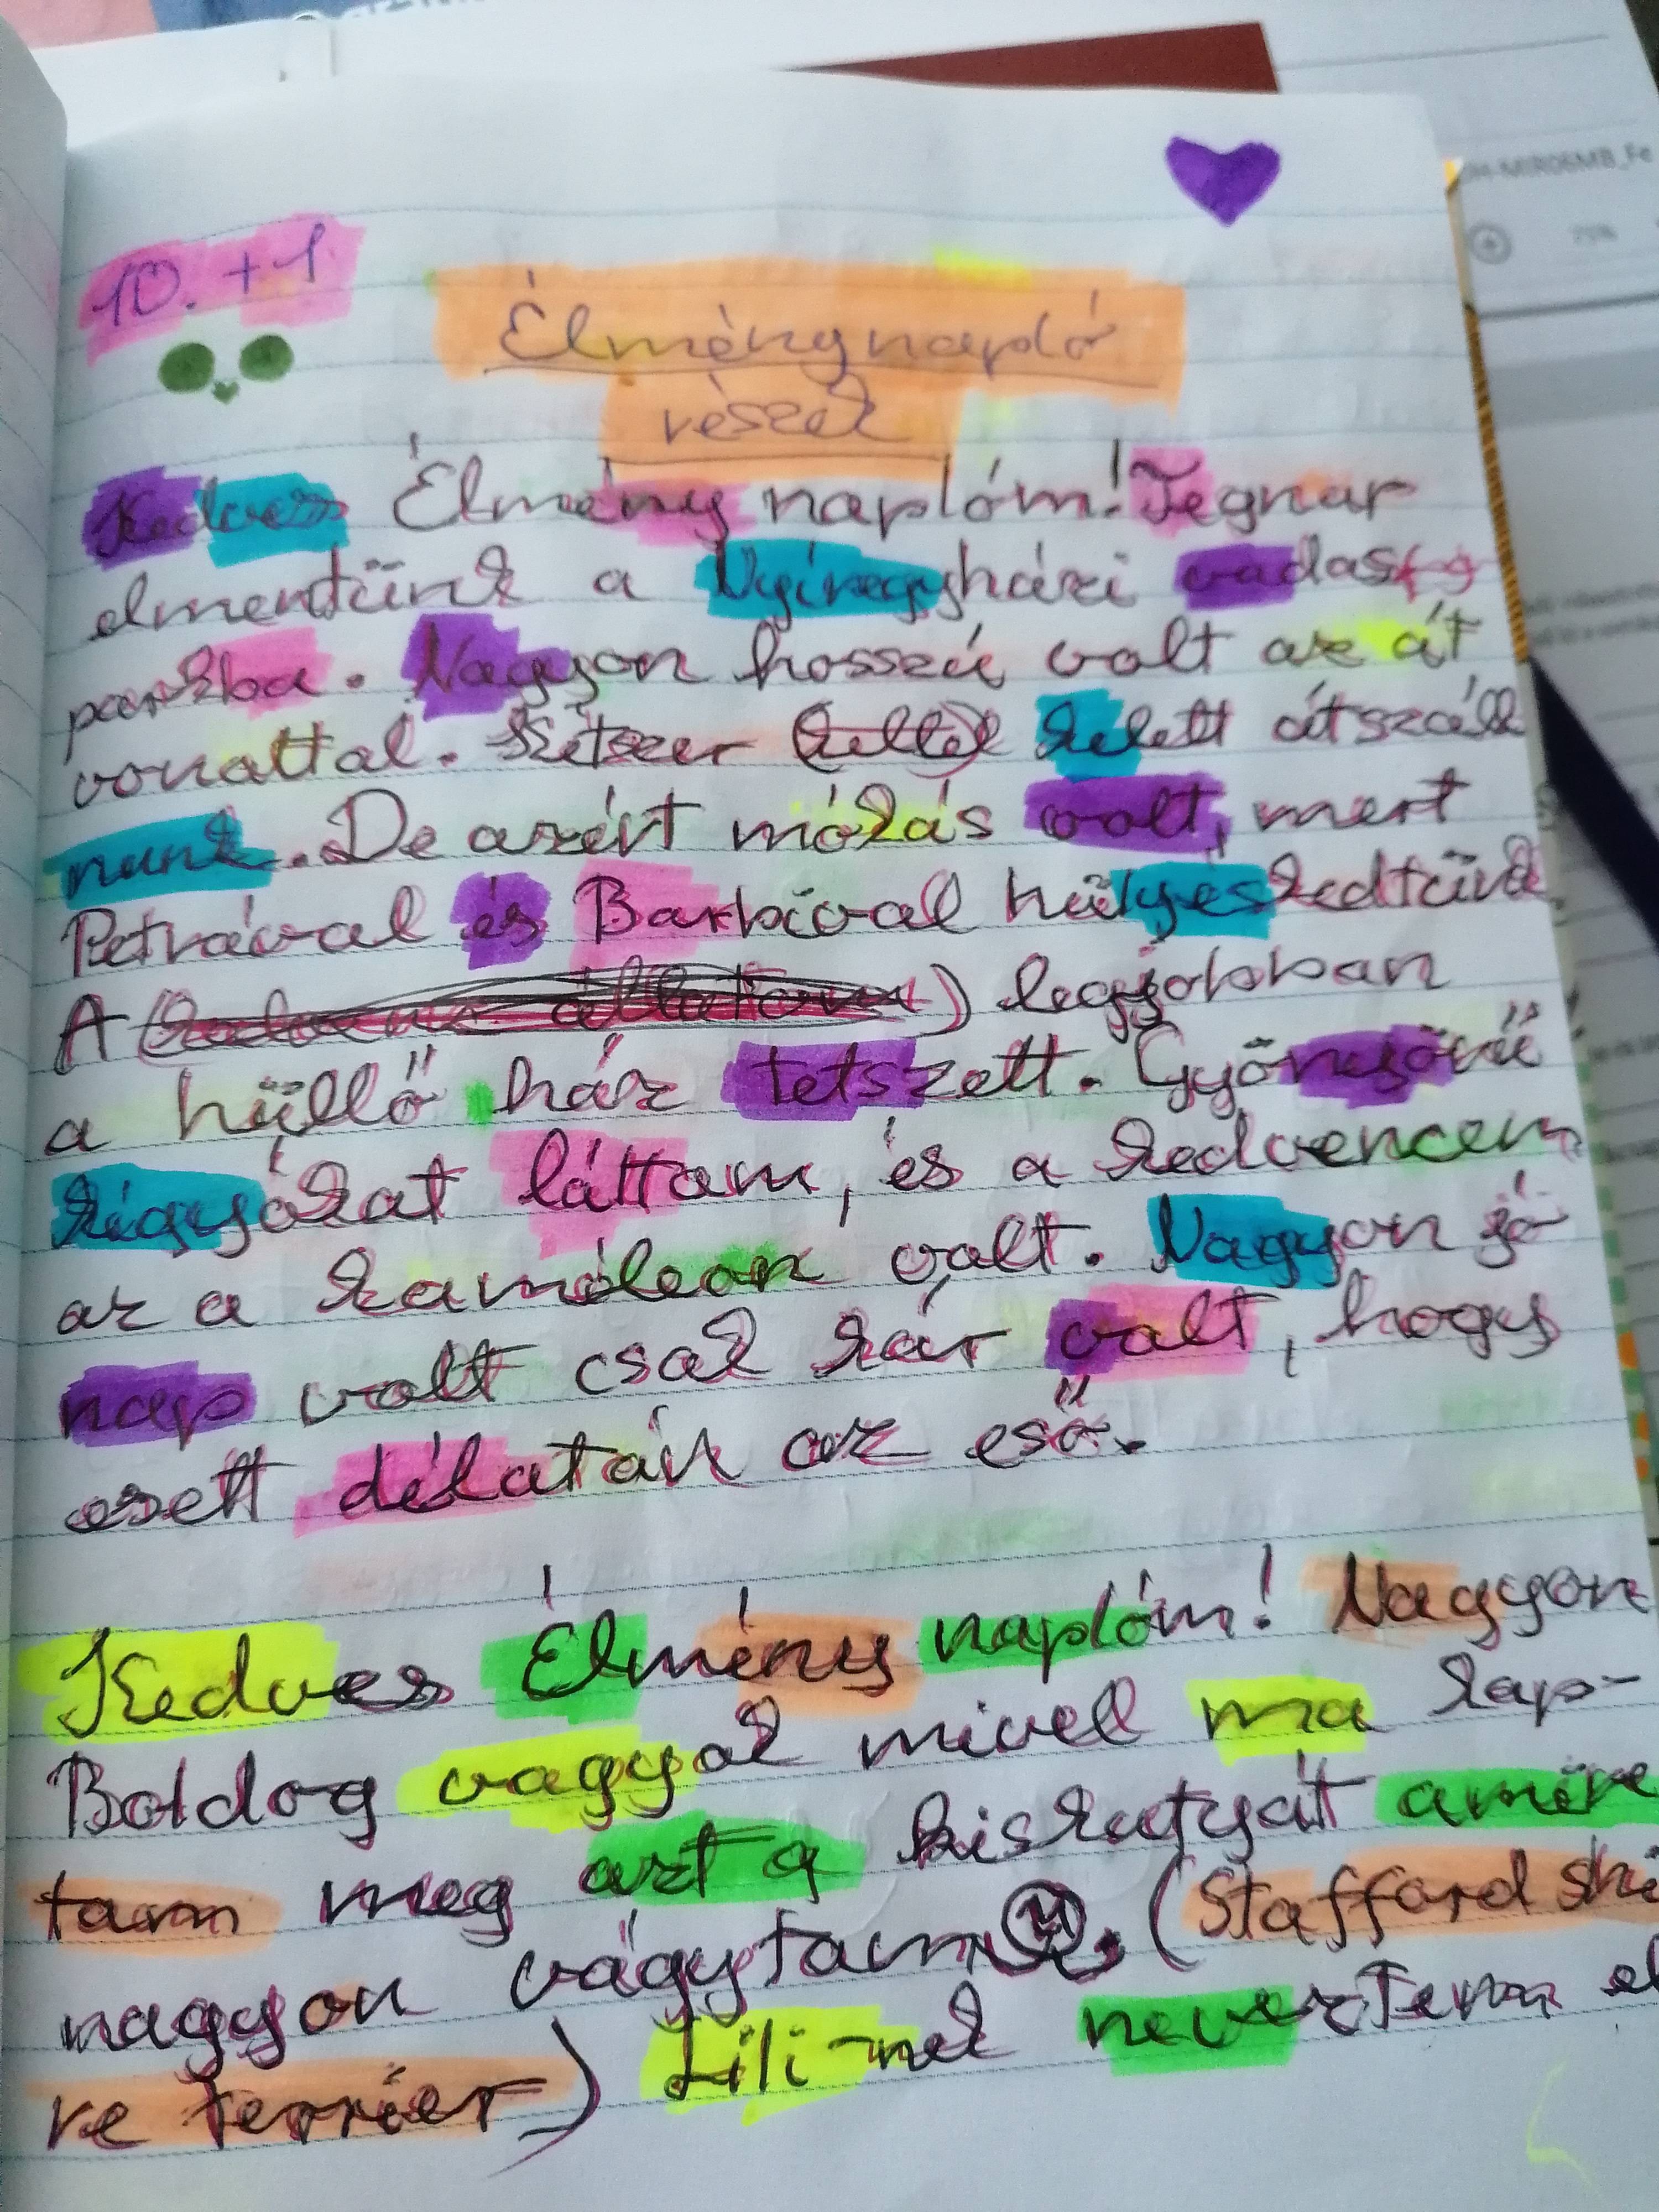 10. + 1.
Élménynapló
részek
Kedves Élmény naplóm! Tegnap
elmentünk a Nyíregyházi vadas
parkba. Nagyon hosszú volt az út
vonattal. Kétszer (kellel) kelett átszáll
nunk. De azért mókás volt, mert
Petrával és Barbival hülyéskedtünk
A legjobban
a hüllő ház tetszett. Gyönyörű
kígyókat láttam, és a kedvencem
az a kaméleon volt. Nagyon jó
nap volt csak kár volt, hogy
esett délután az eső.
Kedves Élmény naplóm! Nagyon
Boldog vagyok mivel ma kap-
tam meg azt a kiskutyát amire
nagyon vágytam. (Stafford shi
re terrier) Lili-nek neveztem el